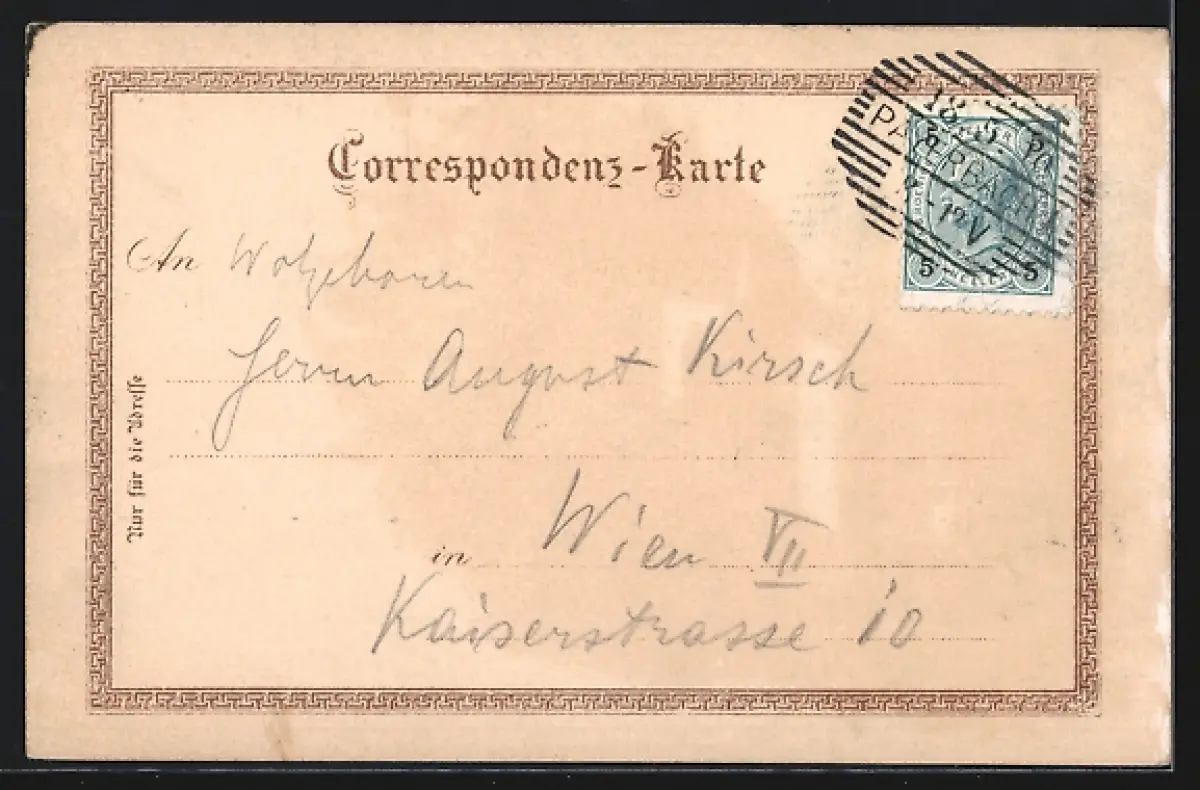 Correspondenz-Karte
18. 5. 00
PAYERBACH
12 V
5 5
An Wolgeboren
Herrn August Kirsch
Nur für die Adresse
in Wien VII
Kaiserstrasse 10